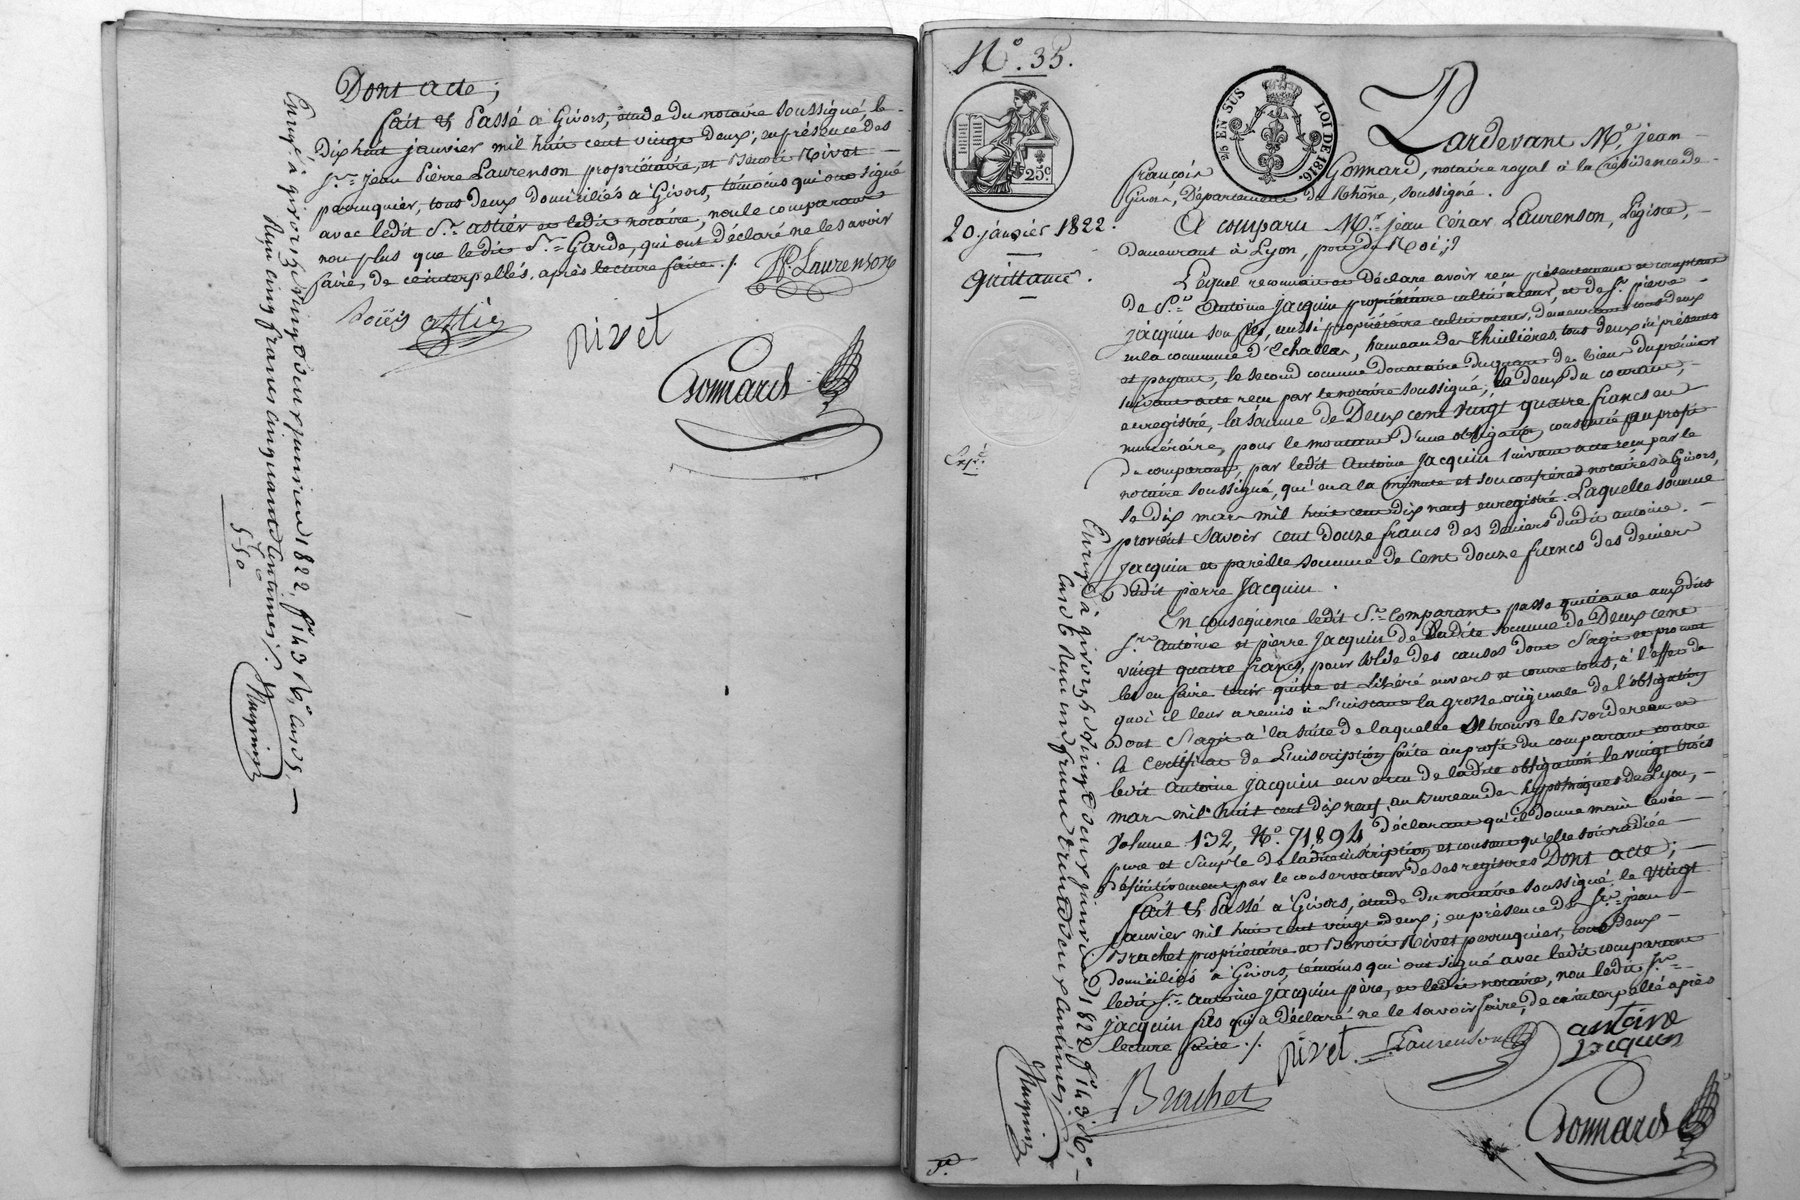 Dont acte;
fait & Passé à Givors, étude du notaire soussigné, le
Dix huit janvier mil huit cent vingt Deux; en présence des
Srs. Jean Pierre Laurenson propriétaire, et Benoit Rivet
perruquier, tous deux domiciliés à Givors, témoins qui ont signé
avec ledit Sr. astier et ledit notaire, non le comparant
non plus que ledit Sr. Garde, qui ont déclaré ne les avoir
faire, de ce interpellés, après lecture faite ./.
JP. Laurenson
Loüis astier
rivet
Gonnard
Enregé à givors le vingt deux janvier 1822, fo. 143 Ro.
Reçu cinq francs cinquante centimes
5
50
5.50
Magnin
No. 35.
2/5 EN SUS
LOI DE 1816.
25c
20. janvier 1822.
quittance.
Expé.
Pardevant Me. jean
françois Gonnard, notaire royal à la Résidence de
Givors, Département du Rhône, soussigné.
A comparu Mr. jean Cézar Laurenson, Légiste,
Demeurant à Lyon,
Lequel reconnait et Déclare avoir reçu présentement et comptant
de Srs. antoine jacquin propriétaire cultivateur, et de Sr. pierre
jacquin son fils, aussi propriétaire cultivateur, demeurant tous deux
en la commune d'Echallas, hameau des Thuilières, tous deux ici présents
et payant, le second comme donataire du quart de biens du premier
suivant acte reçu par le notaire soussigné, le deux du courant,
enregistré, la somme de Deux cent vingt quatre francs en
numéraire, pour le montant d'une obligation consentie au profit
du comparant, par ledit Antoine Jacquin suivant acte reçu par le
notaire soussigné, qui en a la minute et son confrère notaires à Givors,
le dix mars mil huit cent dix neuf enregistré. Laquelle somme
provient savoir cent douze francs des deniers dudit antoine
Jacquin et pareille somme de Cent douze francs des deniers
dudit pierre Jacquin.
En conséquence ledit Sr. Comparant passe quittance auxdits
Srs. Antoine et pierre Jacquin de ladite somme de Deux cent
vingt quatre francs, pour solde des causes dont s'agit et promet
les en faire tenir quitte et libéré envers et contre tous, à l'effet de
quoi il leur a remis à l'instant la grosse originale de l'obligation
dont s'agit à la suite de laquelle se trouve le bordereau et
le certificat de l'inscription faite au profit du comparant contre
ledit Antoine jacquin en vertu de ladite obligation le vingt trois
mars mil huit cent dix neuf, au bureau des hypothèques de Lyon,
volume 132, No. 71,894 déclarant qu'il donne main levée
pure et simple de ladite inscription et consent qu'elle soit radiée
définitivement par le conservateur de ses registres Dont acte;
fait & Passé à Givors, étude du notaire soussigné le vingt
janvier mil huit cent vingt deux; en présence de Srs. jean
Brachet propriétaire et Benoit Rivet perruquier, tous Deux
domiciliés à Givors, témoins qui ont signé avec ledit comparant
ledit Sr. antoine jacquin père, et ledit notaire, non ledit Sr.
jacquin fils qui a déclaré ne le savoir faire, de ce interpellé après
lecture faite ./.
rivet
Laurenson
antoine
jacquin
Brachet
Gonnard
Enregé à givors le vingt deux janvier 1822 fo. 143. Ro.
Case 6 Reçu un franc trente deux centimes
Magnin